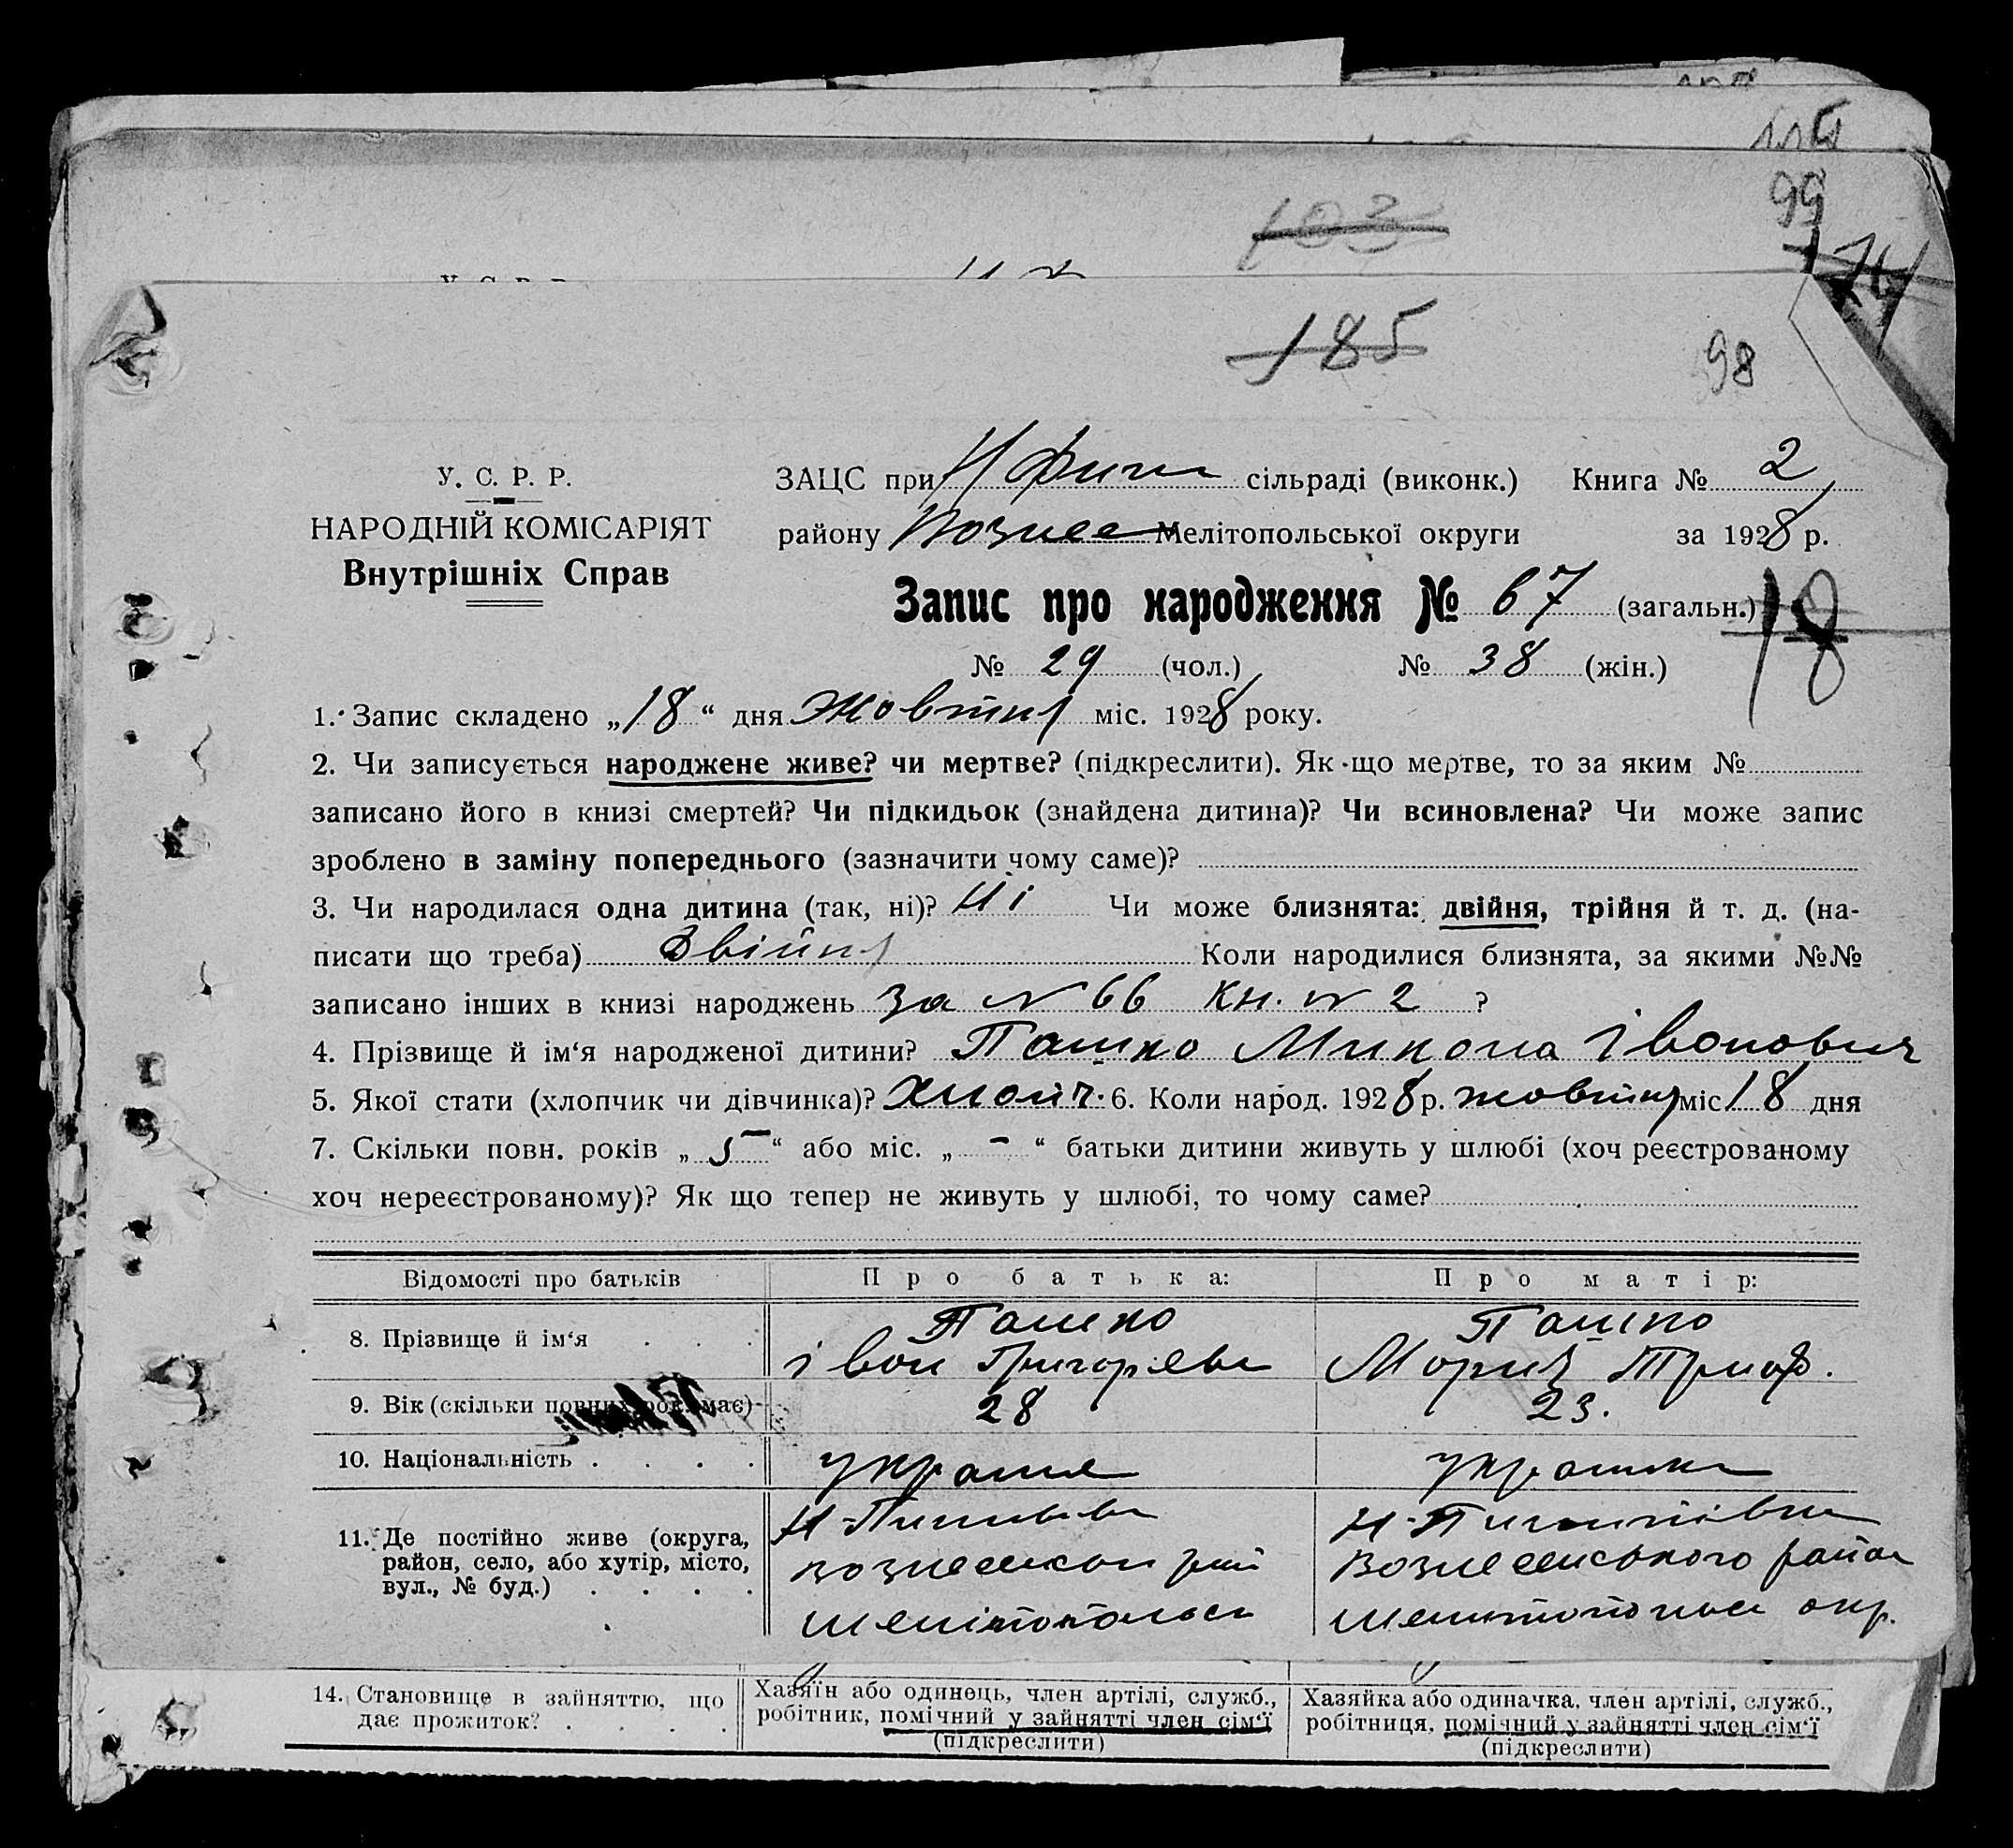 103
99
У. С. Р. Р.
185
98
У. С. Р. Р.
НАРОДНІЙ КОМІСАРІЯТ
Внутрішніх Справ
ЗАЦС при сільраді (виконк.) Книга № 2
району Вознес Мелітопольської округи за 1928 р.
Запис про народження № 67 (загальн.)
№ 29 (чол.) № 38 (жін.)
1. Запис складено „18“ дня Жовтня міс. 1928 року.
2. Чи записується народжене живе? чи мертве? (підкреслити). Як що мертве, то за яким №
записано його в книзі смертей? Чи підкидьок (знайдена дитина)? Чи всиновлена? Чи може запис
зроблено в заміну попереднього (зазначити чому саме)?
3. Чи народилася одна дитина (так, ні)? Ні Чи може близнята: двійня, трійня й т. д. (на-
писати що треба) Двійня Коли народилися близнята, за якими №№
записано інших в книзі народжень за № 66 кн. № 2 ?
4. Прізвище й ім‘я народженої дитини? Пашко Микола Іванович
5. Якої стати (хлопчик чи дівчинка)? Хлопч. 6. Коли народ. 1928 р. жовтня міс. 18 дня
7. Скільки повн. років „5“ або міс. „-“ батьки дитини живуть у шлюбі (хоч реєстрованому
хоч нереєстрованому)? Як що тепер не живуть у шлюбі, то чому саме?
Відомості про батьків Про батька: Про матір:
8. Прізвище й ім‘я Пашко Пашко
Іван Григорьев Мария Триф.
9. Вік (скільки повних рок. має) 28 23.
10. Національність україн українка
11. Де постійно живе (округа,
район, село, або хутір, місто,
вул., № буд.)
Вознесенського район
Мелітопольск окр.
14. Становище в зайняттю, що
дає прожиток?
Хазяїн або одинець, член артілі, служб.,
робітник, помічний у зайнятті член сім‘ї
(підкреслити)
Хазяйка або одиначка, член артілі, служб.,
робітниця, помічний у зайнятті член сім‘ї
(підкреслити)